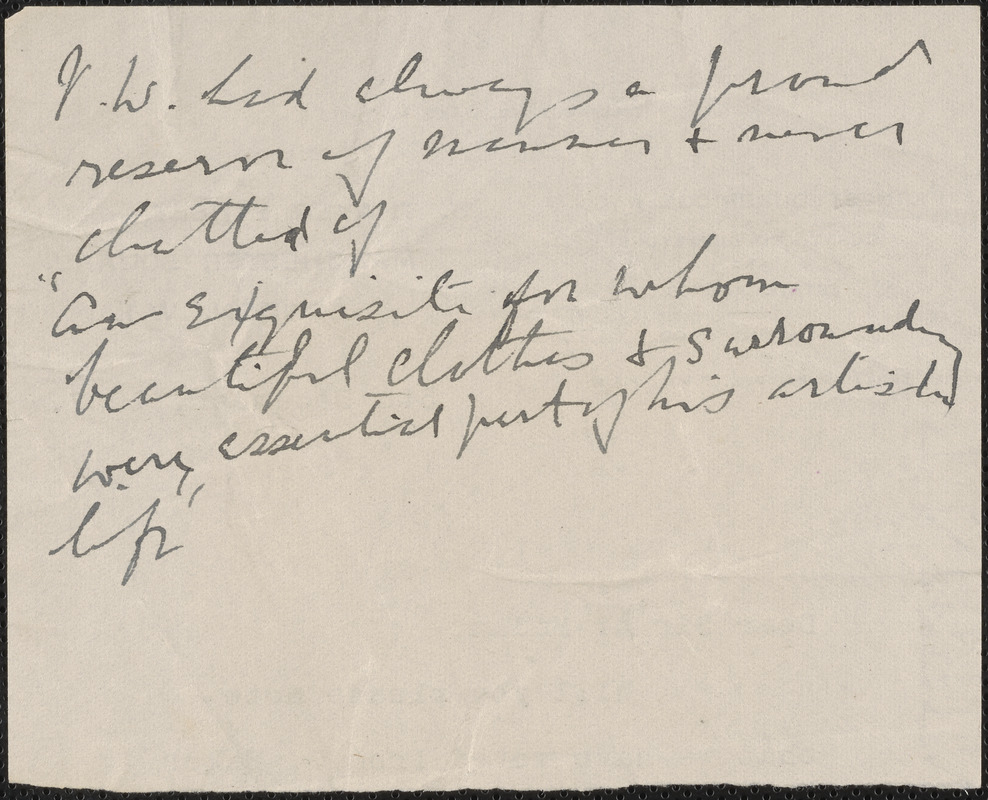 V. W. had always a proud
reserve of manner & never
chatted of
"An exquisite for whom
beautiful clothes & surroundings
were essential part of his artistic
life"